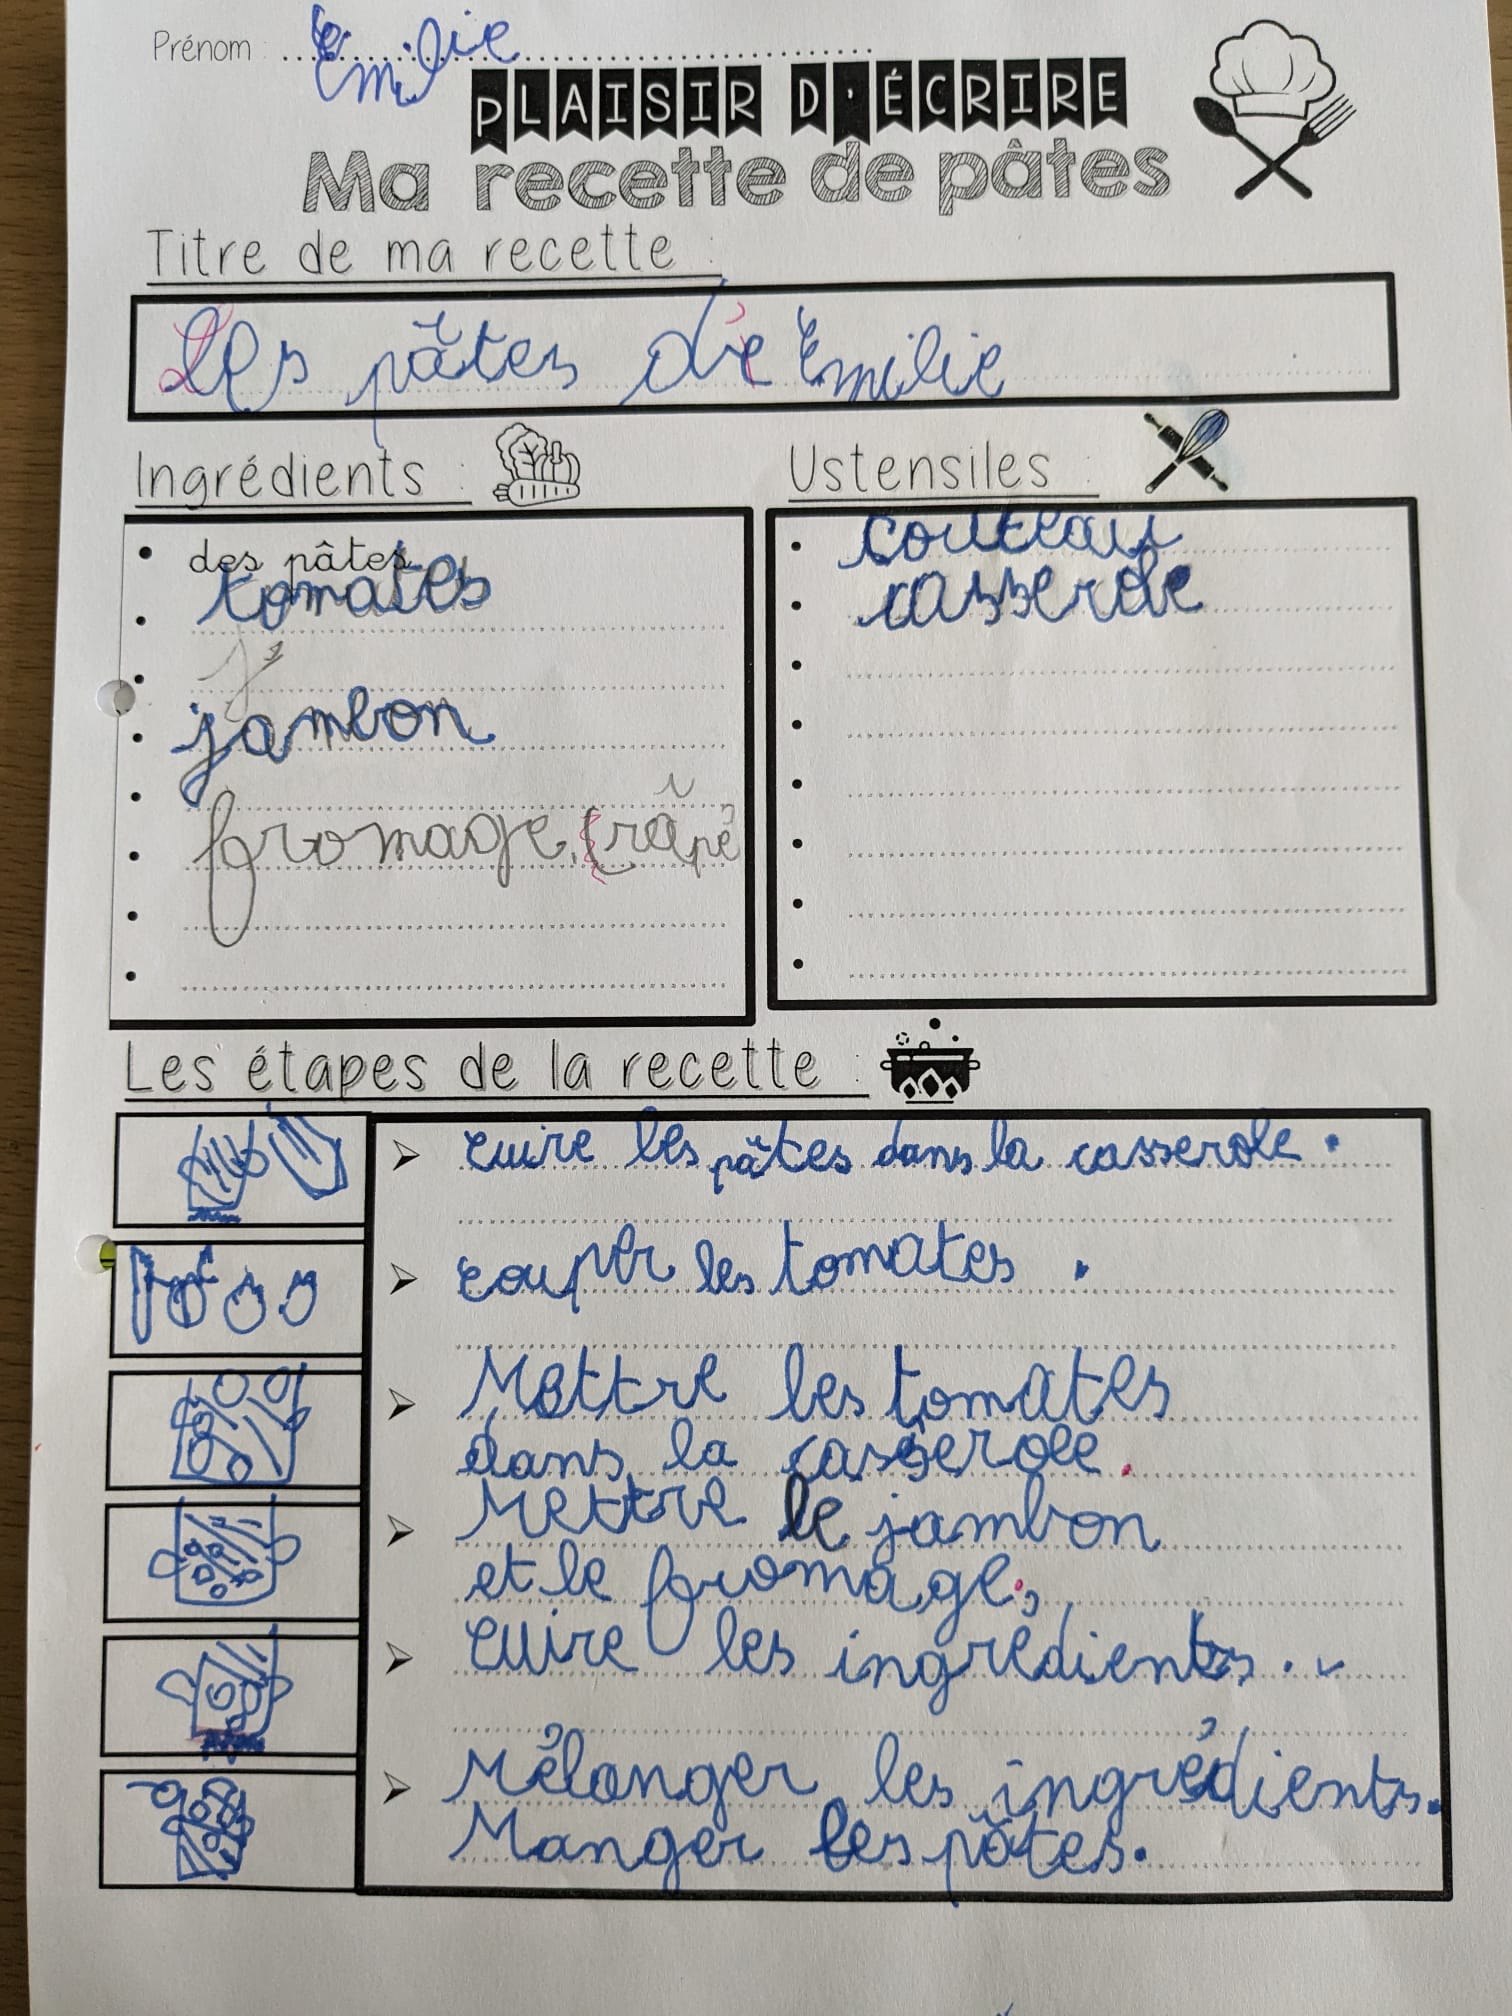 Prénom : Emilie
PLAISIR D'ÉCRIRE
Ma recette de pâtes
Titre de ma recette :
Les pâtes d'Emilie
Ingrédients :
• des pâtes
• tomates
•
• jambon
•
• fromage (râpé
•
•
Ustensiles :
• couteau
• casserole
•
•
•
•
•
•
Les étapes de la recette :
➤ cuire les pâtes dans la casserole.
➤ couper les tomates.
➤ Mettre les tomates
dans la casserole.
➤ Mettre le jambon
et le fromage.
➤ cuire les ingrédients.
➤ Mélanger les ingrédients.
Manger les pâtes.